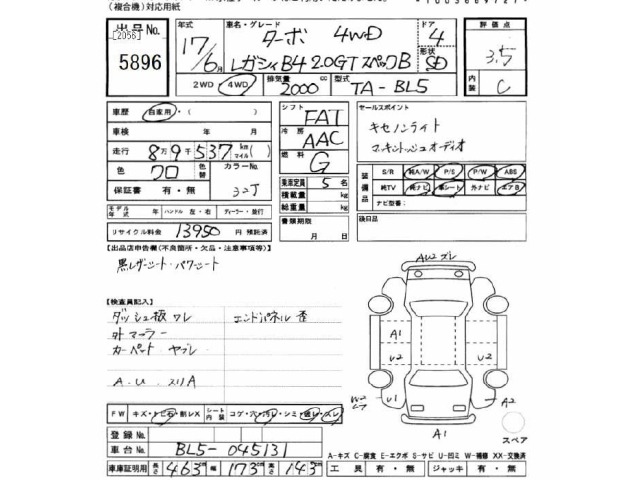 (複合機)対応用紙
出品No. [2056] 5896
年式 17/6月
車名・グレード ターボ 4WD
レガシィB4 2.0GT スペックB
ドア 4
形状 SD
評価点 3.5
内装 C
2WD 4WD 排気量 2000 cc 型式 TA-BL5
車歴 自家用・( )
車検 年 月
走行 8万9千537 km(マイル)
色 クロ 色替 カラーNo. 32J
保証書 有・無
シフト FAT
冷房 AAC
燃料 G
乗車定員 5 名
積載量 kg
総重量 kg
書類期限 月 日
セールスポイント
キセノンライト
マッキントッシュオーディオ
装備品 S/R 純A/W P/S P/W ABS
純TV 純ナビ 革シート 外ナビ エアB
ナビ型番:
後日品
モデル年式 年 ハンドル 左・右 ディーラー・並行
リサイクル料金 13950 円 預託済
【出品店申告欄(不良箇所・欠品・注意事項等)】
黒レザーシート・パワーシート
【検査員記入】
ダッシュ板ワレ エンドパネル歪
外マフラー
カーペットヤブレ
A.U スリA
AW2 ズレ
A1
U2 U2
W2 U1 A2
A1
スペア
FW キズ・トビ石・割レX シート内装 コゲ・穴・汚レ・シミ・破レ・スレ
登録No.
車台No. BL5-045131
A-キズ C-腐食 E-エクボ S-サビ U-凹ミ W-補修 XX-交換済
車庫証明用 長さ 463cm 幅 173cm 高さ 143cm 工具 有・無 ジャッキ 有・無